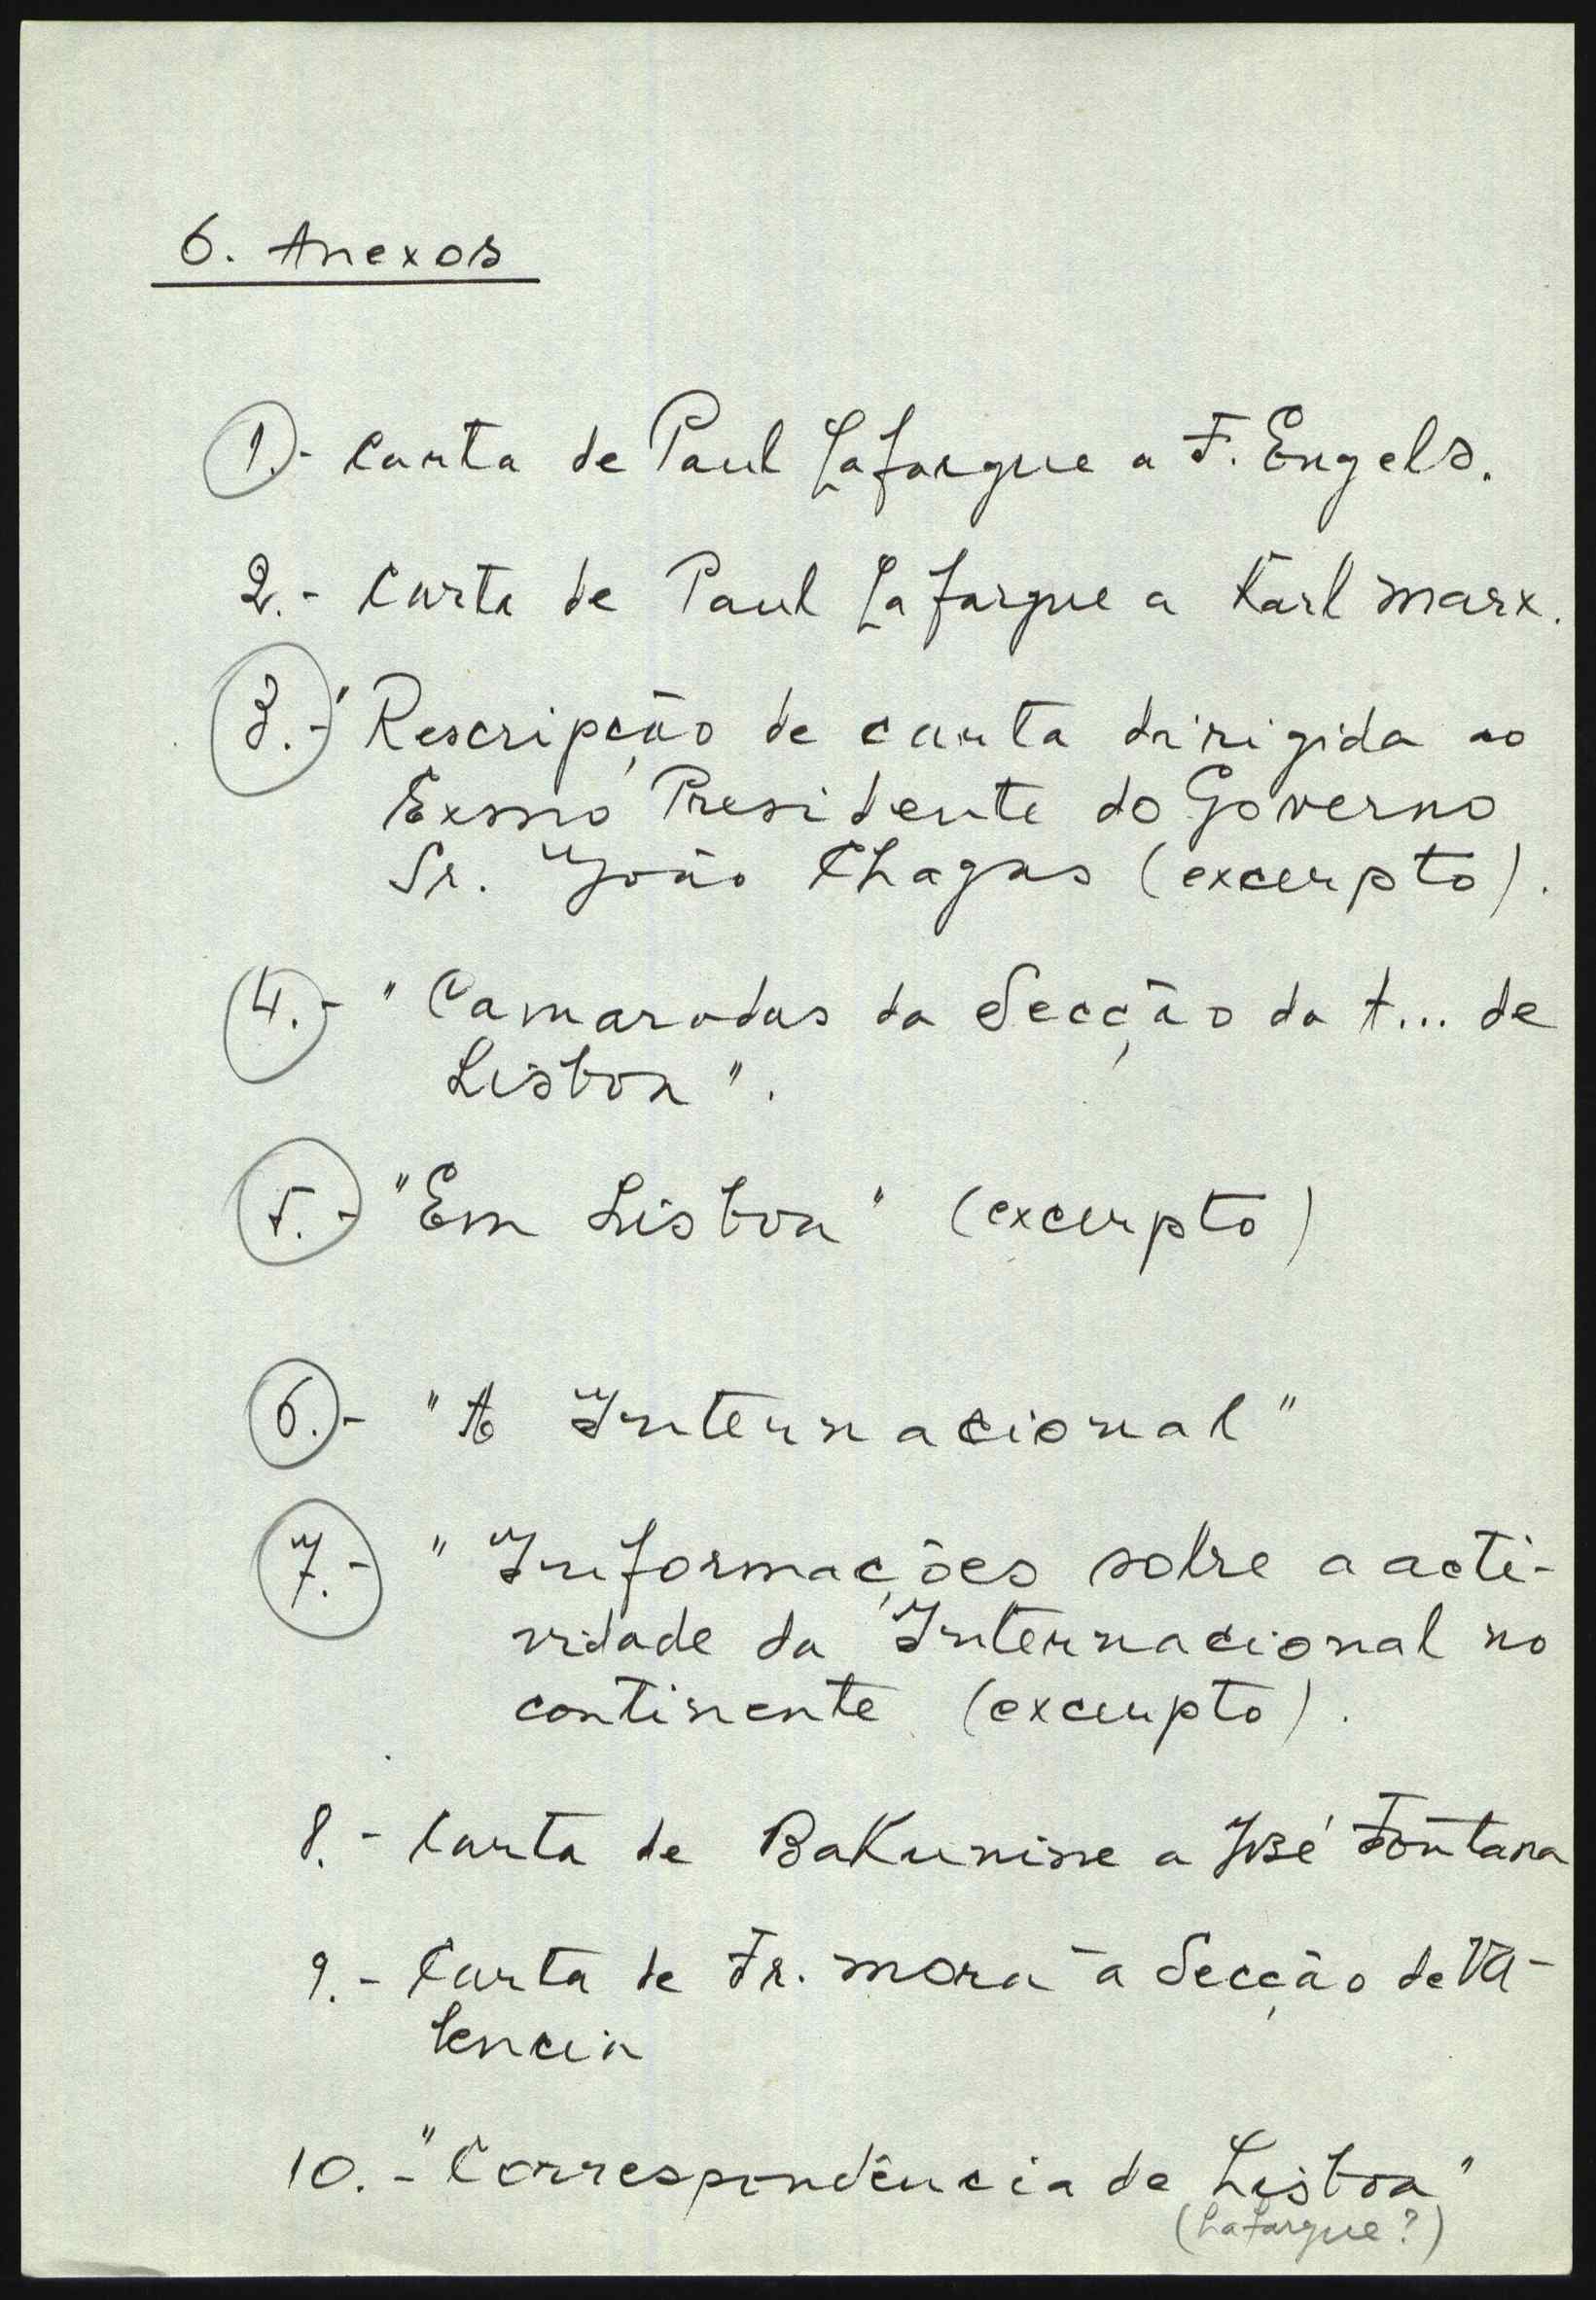 6. Anexos
1.- Carta de Paul Lafargue a F. Engels.
2.- Carta de Paul Lafargue a Karl Marx.
3.- "Rescripção de carta dirigida ao
Exmo Presidente do Governo
Sr. João Chagas (excerpto).
4.- "Camaradas da Secção da A... de
Lisboa".
5.- "Em Lisboa" (excerpto)
6.- "A Internacional"
7.- "Informações sobre a acti-
vidade da Internacional no
continente (excerpto).
8.- Carta de Bakunine a José Fontana
9.- Carta de Fr. Mora à Secção de Va-
lencia
10.- "Correspondência de Lisboa"
(Lafargue?)